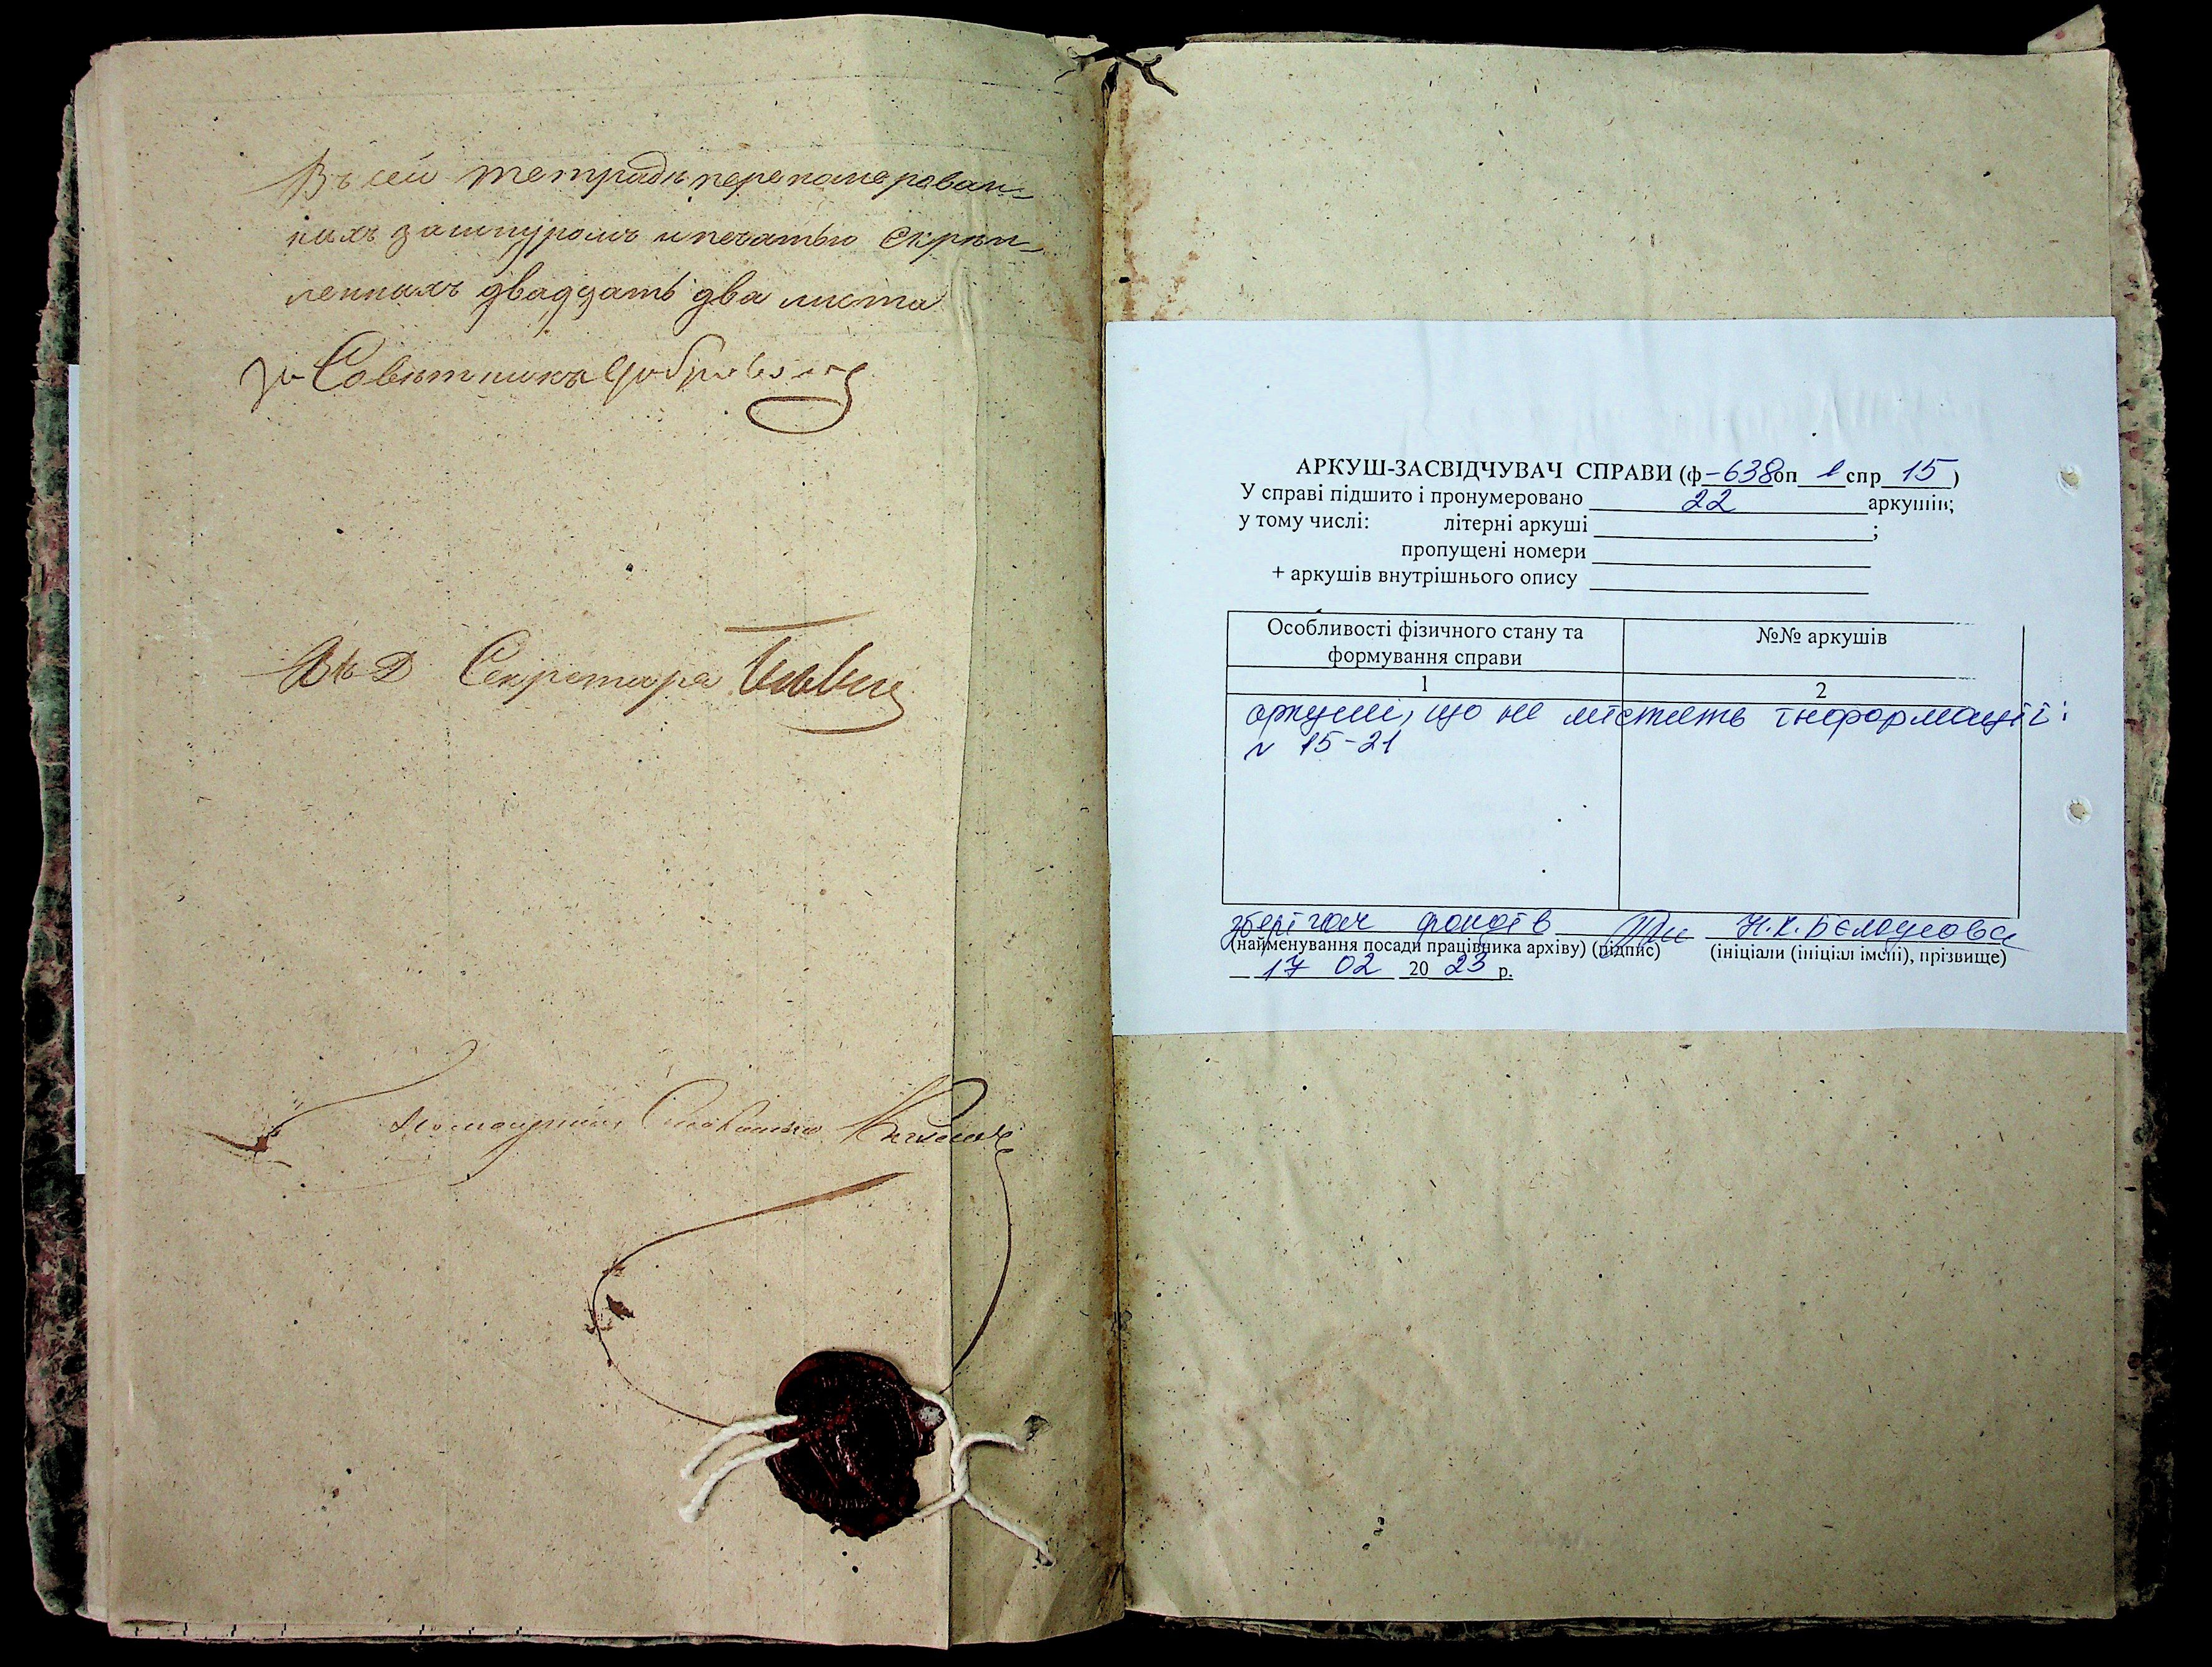 Въ сей тетради перенумерован-
ныхъ зашнуромъ и печатью скреп-
ленныхъ двадцать два листа
За Советника
ВъД Секретаря
АРКУШ-ЗАСВІДЧУВАЧ СПРАВИ (ф-638 оп 1 спр 15)
У справі підшито і пронумеровано 22 аркушів;
у тому числі: літерні аркуші ;
пропущені номери
+ аркушів внутрішнього опису
Особливості фізичного стану та формування справи
№№ аркушів
1
2
аркуші, що не містять інформації:
№ 15-21
зберігач фондів Н.К. Бєлоусова
(найменування посади працівника архіву) (підпис) (ініціали (ініціал імені), прізвище)
17 02 2023 р.